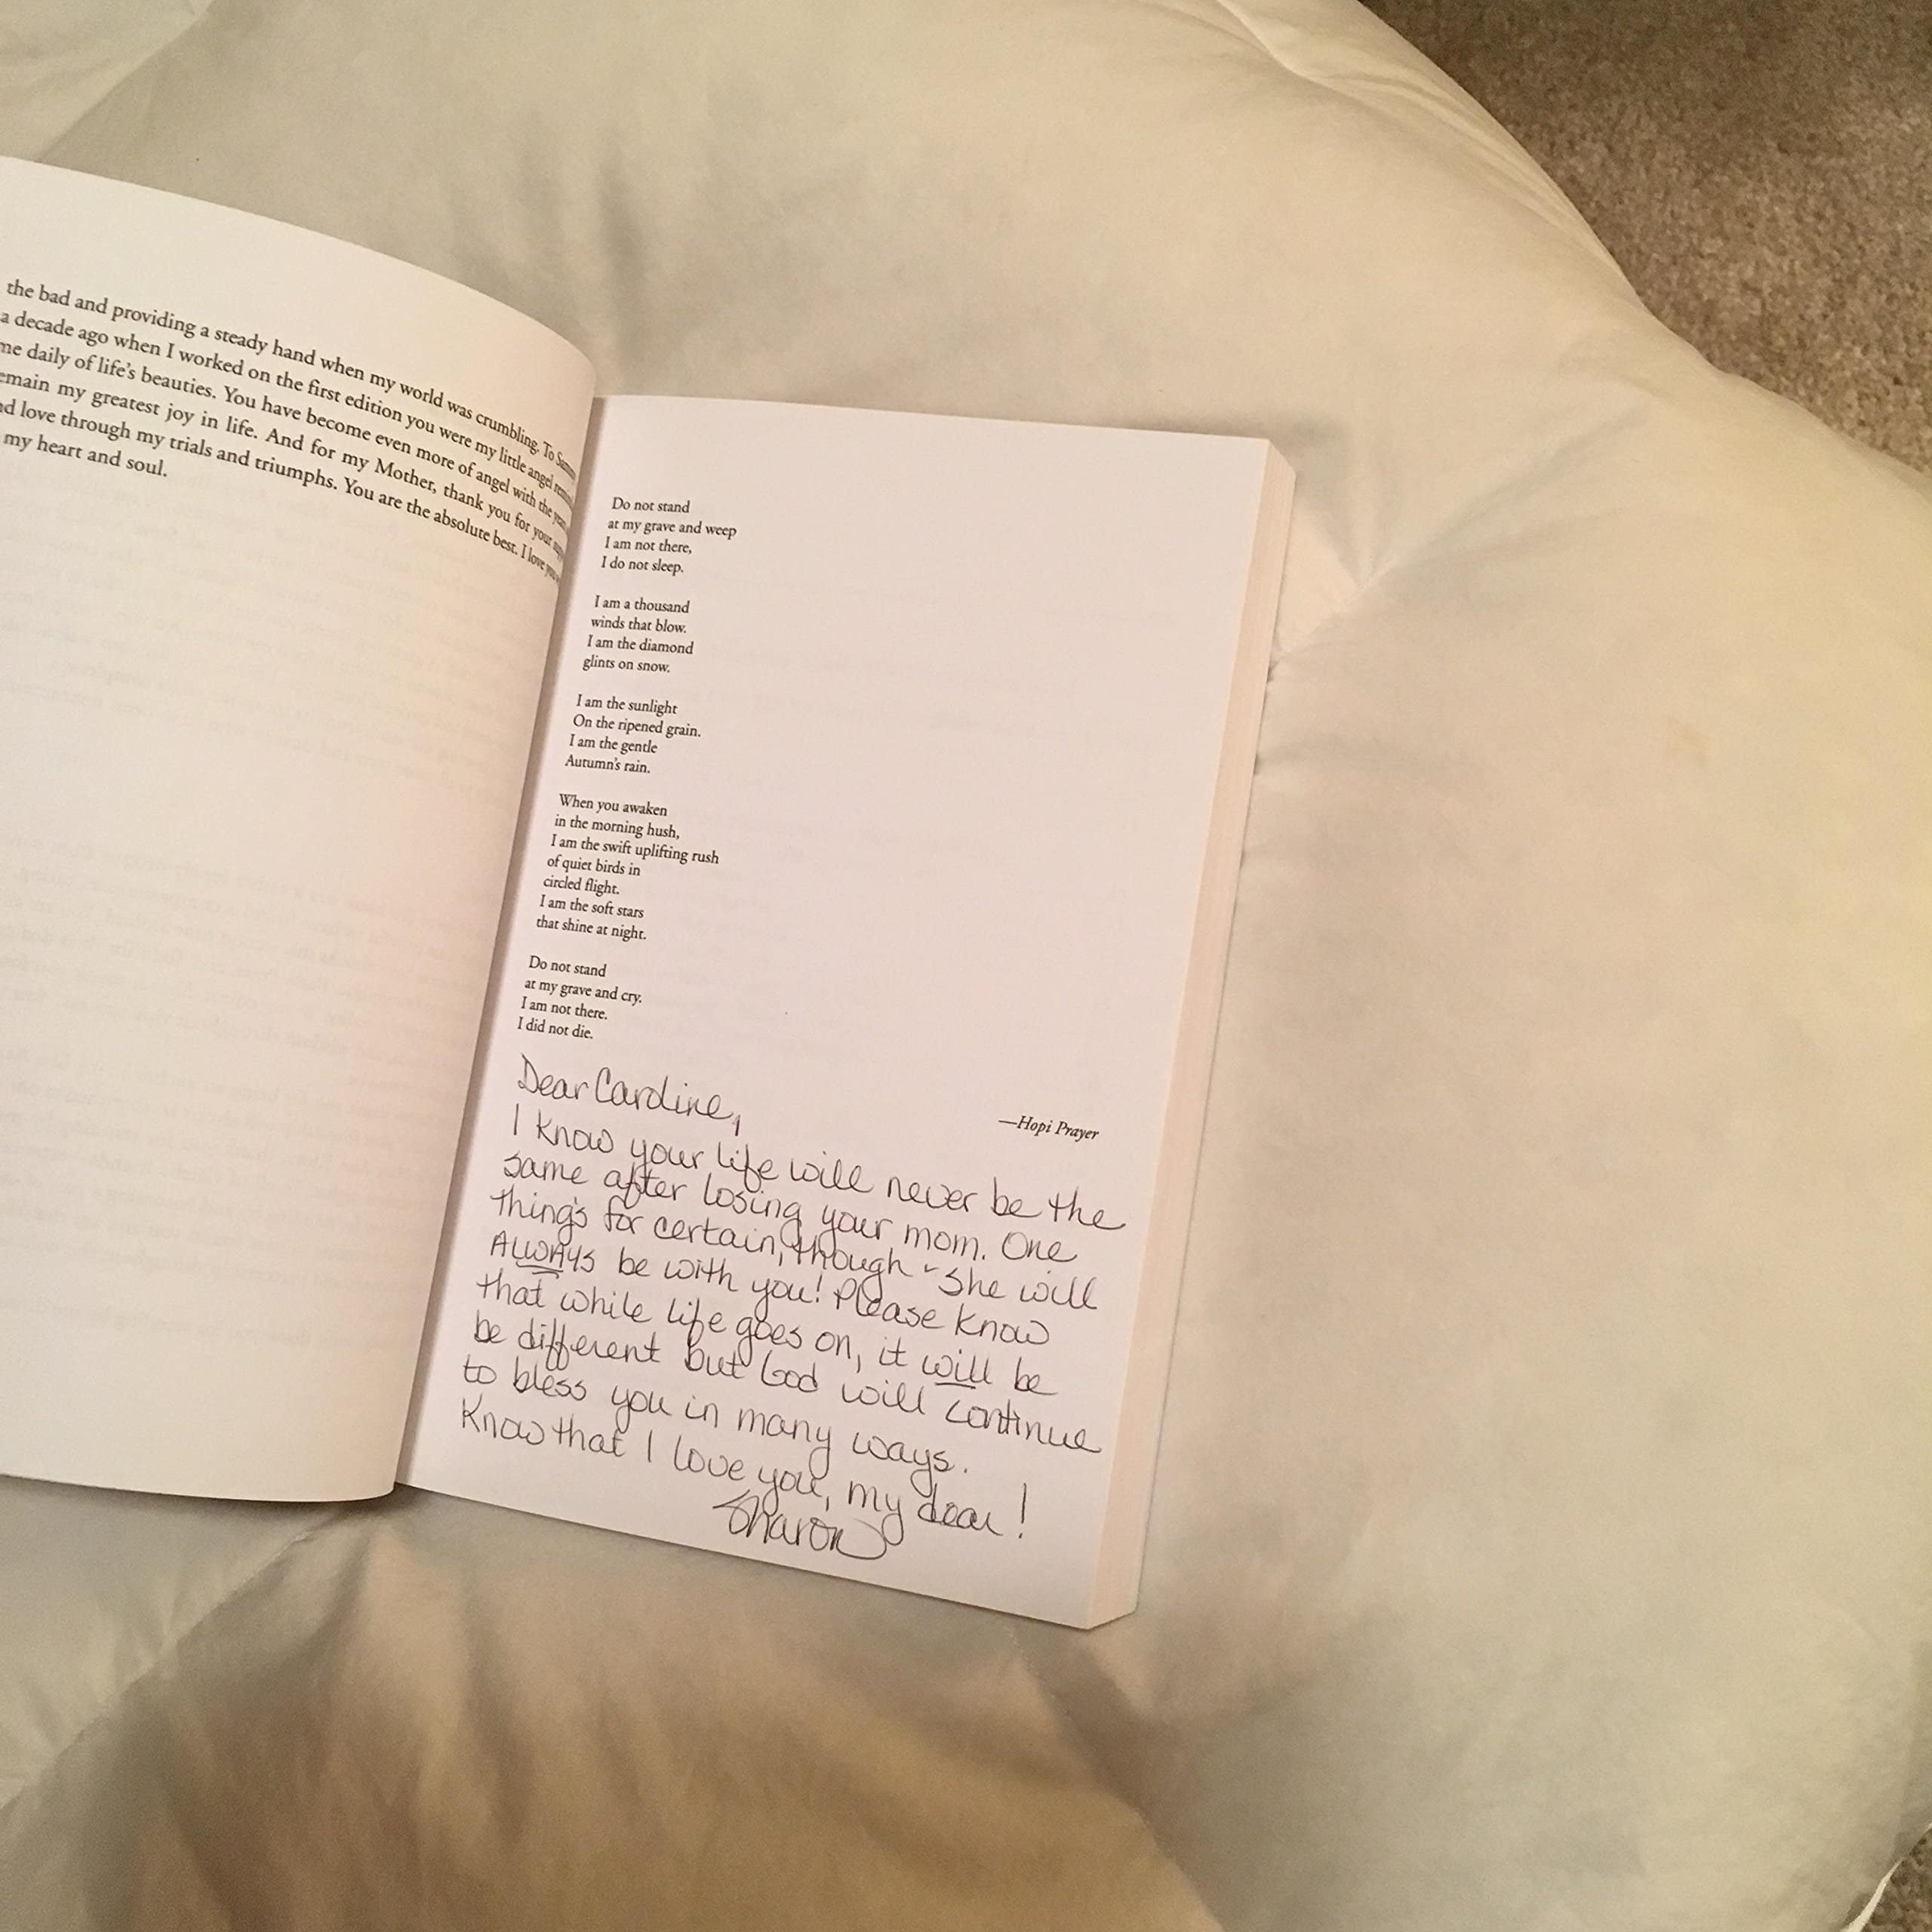 the bad and providing a steady hand when my world was crumbling. To
a decade ago when I worked on the first edition you were my little angel
me daily of life's beauties. You have become even more of angel with the
my greatest joy in life. And for my Mother, thank you for your
love through my trials and triumphs. You are the absolute best. I love
my heart and soul.
Do not stand
at my grave and weep
I am not there,
I do not sleep.
I am a thousand
winds that blow.
I am the diamond
glints on snow.
I am the sunlight
On the ripened grain.
I am the gentle
Autumn's rain.
When you awaken
in the morning hush,
I am the swift uplifting rush
of quiet birds in
circled flight.
I am the soft stars
that shine at night.
Do not stand
at my grave and cry.
I am not there.
I did not die.
—Hopi Prayer
Dear Caroline,
I know your life will never be the
same after losing your mom. One
thing's for certain, though - she will
ALWAYS be with you! Please know
that while life goes on, it will be
be different but God will continue
to bless you in many ways.
Know that I love you, my dear!
Sharon